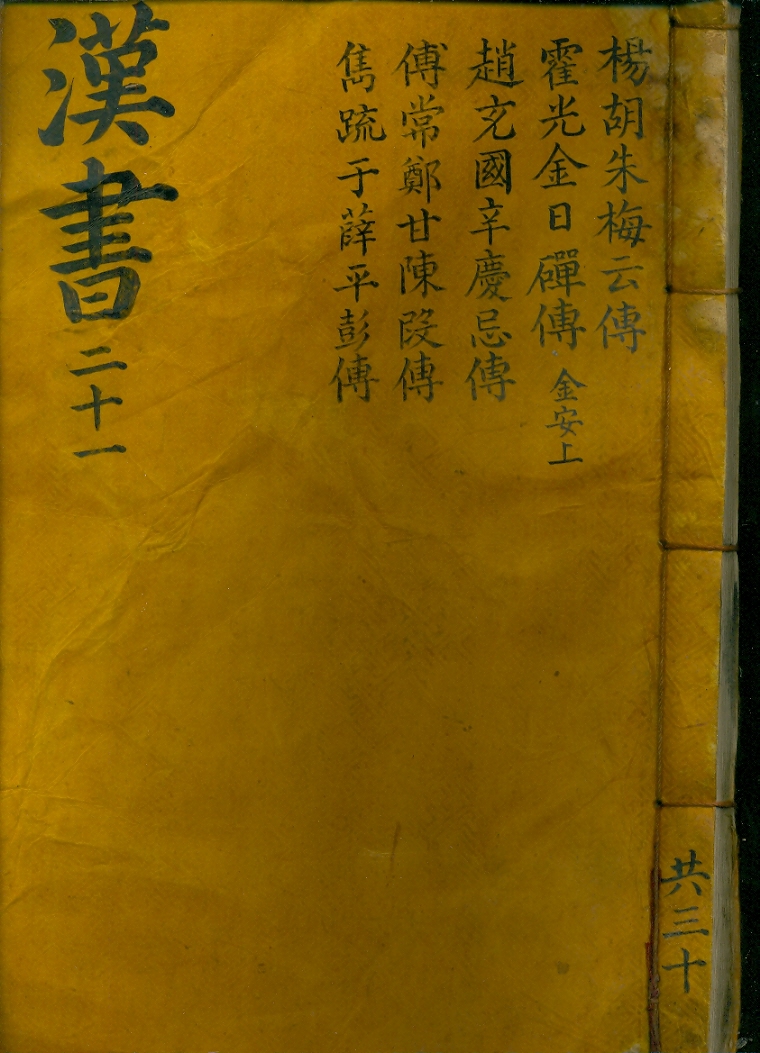 楊胡朱梅云傳
霍光金日磾傳 金安上
趙充國辛慶忌傳
傅常鄭甘陳段傳
雋疏于薛平彭傳
漢書二十一
共三十